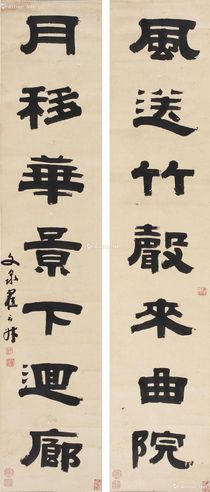 風送竹聲來曲院
月移華景下迴廊
文泉翟云升